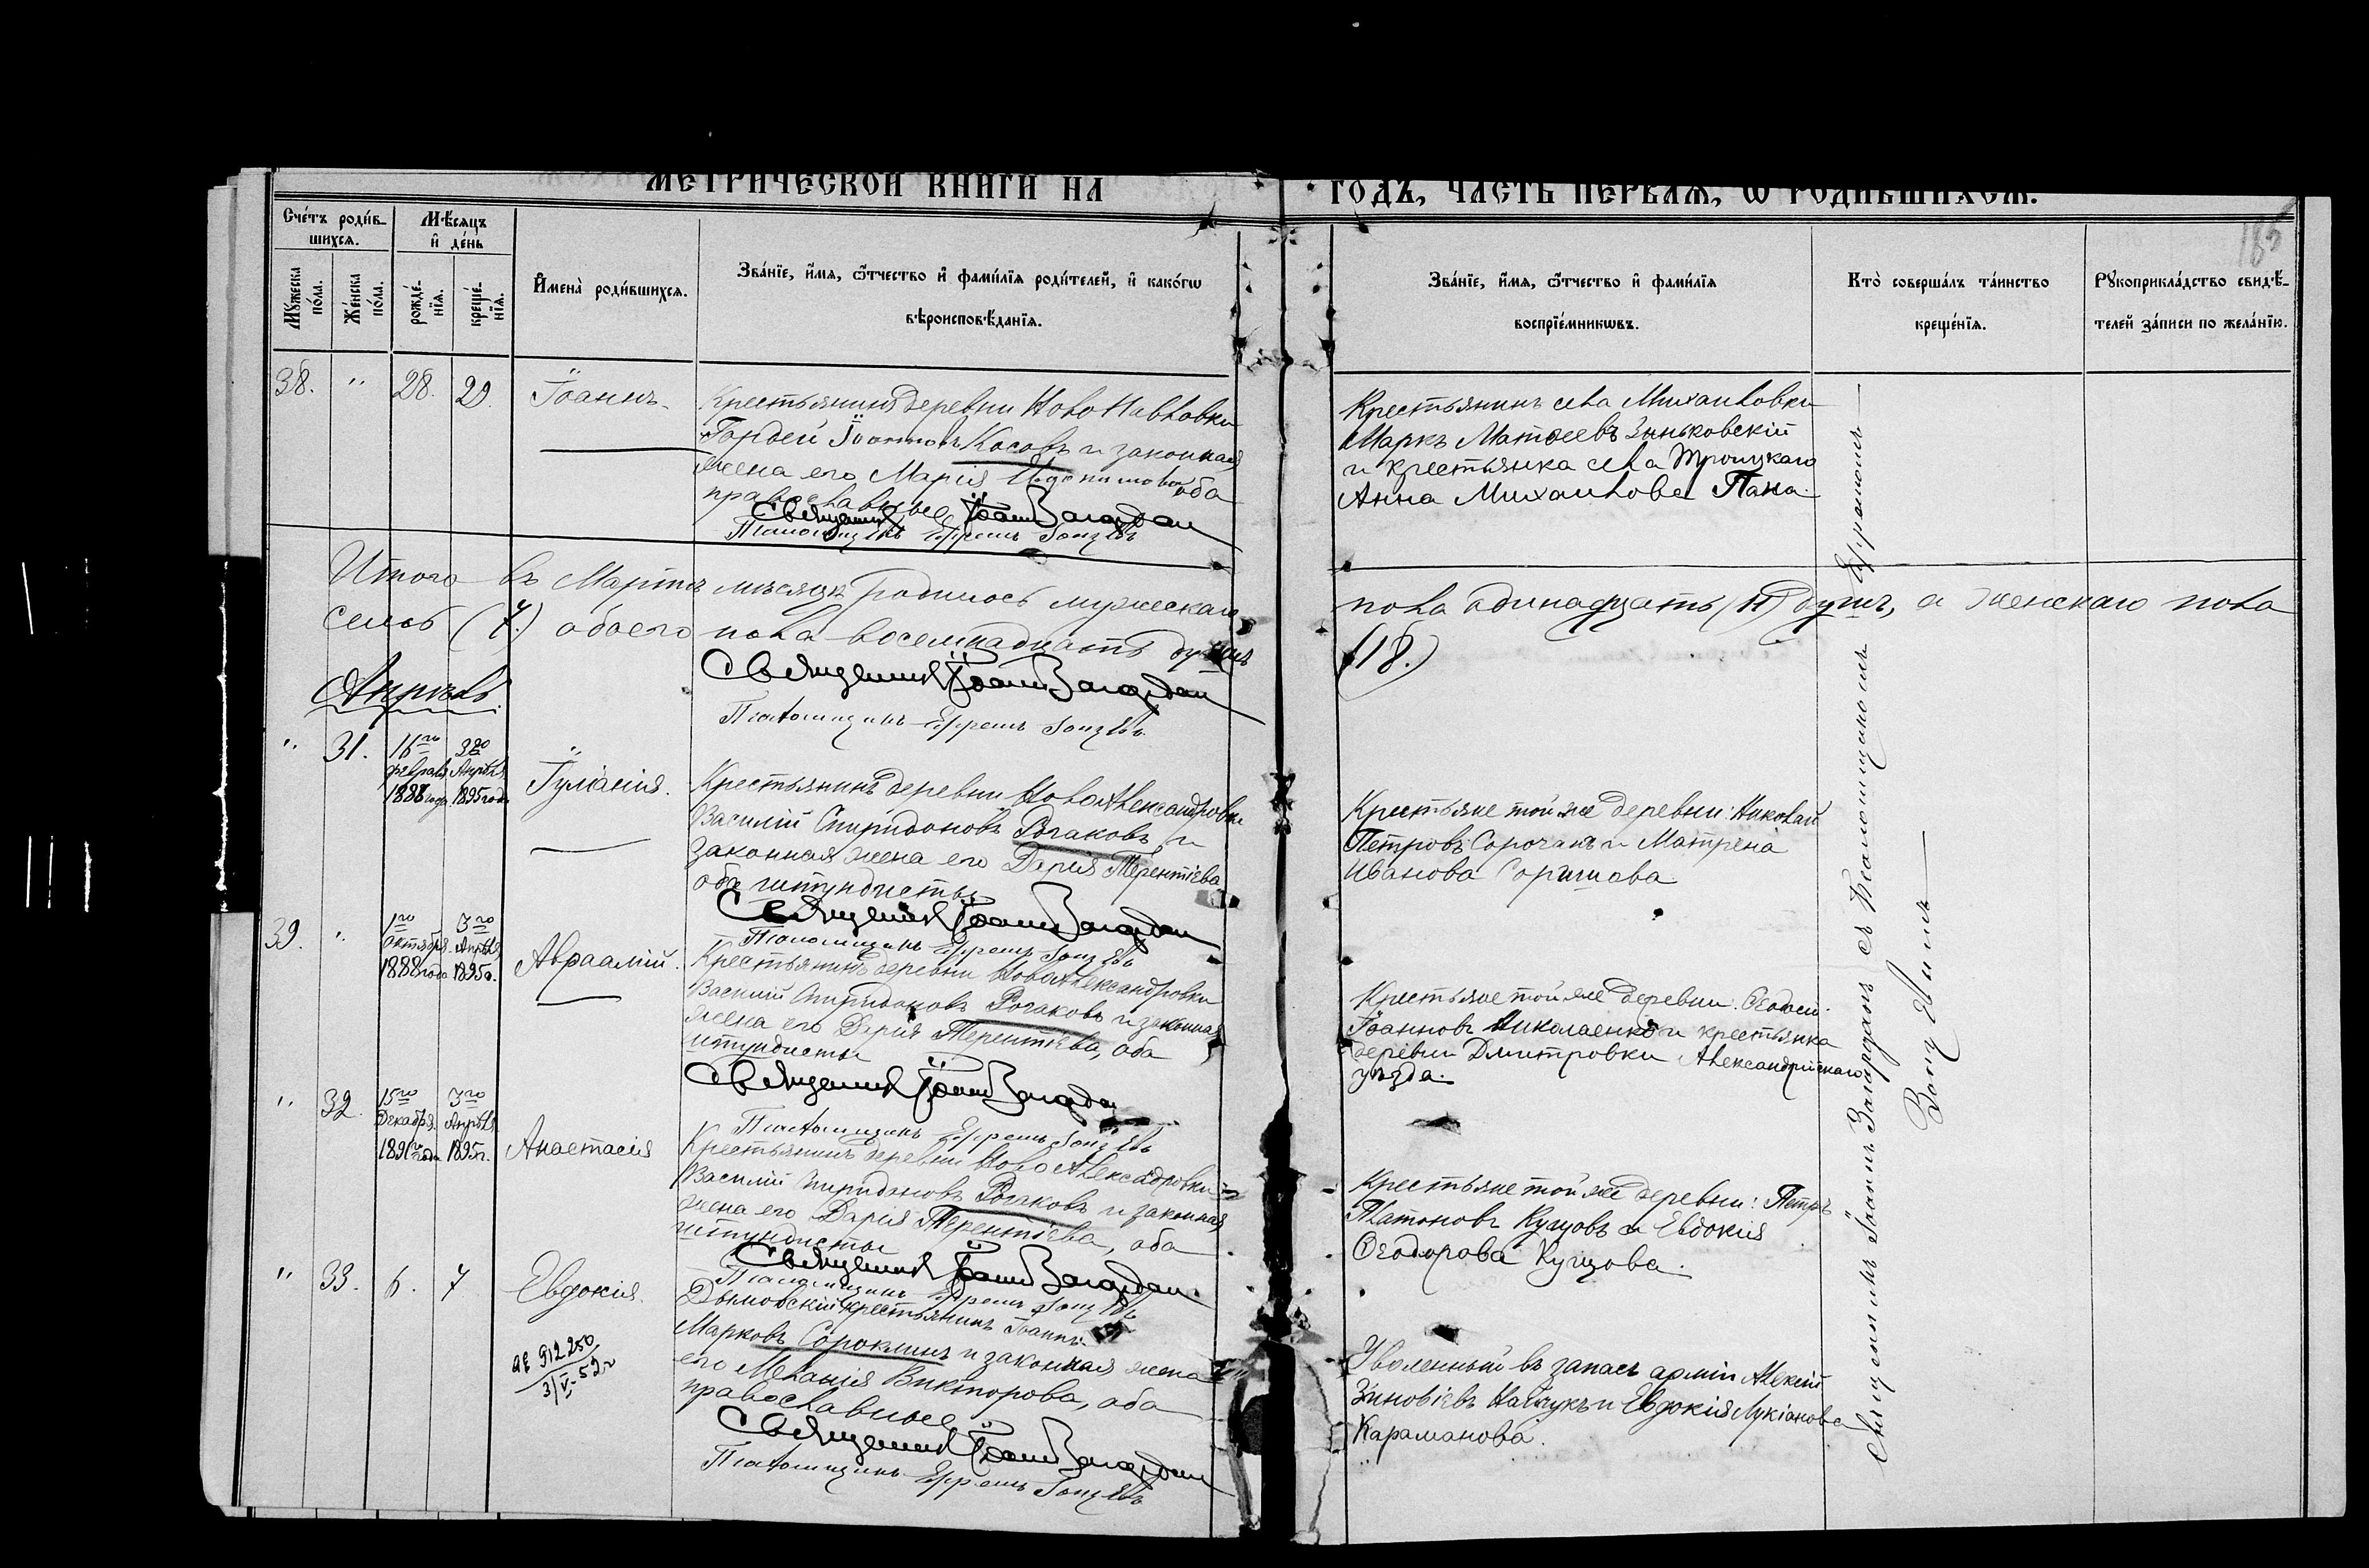 МЕТРИЧЕСКОЙ КНИГИ НА
ГОДЪ, ЧАСТЬ ПЕРВАѦ, Ѡ РОДИВШИХСѦ.
185
Сче́тъ роди́в-
шихсѧ.
Мѣ́сѧцъ
и҆ де́нь
Мꙋжеска
по́ла.
Же́нска
по́ла.
рожде́-
нїѧ.
креще́-
нїѧ.
И҆мена̀ роди́вшихсѧ.
Зва́нїе, и҆́мѧ, ѻ҆́тчество и҆ фами́лїѧ роди́телей, и҆ како́гѡ
вѣроисповѣ́данїѧ.
Зва́нїе, и҆́мѧ, ѻ҆́тчество и҆ фами́лїѧ
воспрїе́мникѡвъ.
Кто̀ соверша́лъ та́инство
креще́нїѧ.
Рꙋкоприкла́дство свидѣ́-
телей за́писи по жела́нїю.
38. " 28. 29. Іоаннъ.
Крестьянинъ деревни Ново Павловки
Гордей Іоанновъ Косовъ и законная
жена его Марія Евдокимова оба
православные
Священникъ Іоаннъ Загардан
Псаломщикъ Ефремъ
Крестьянинъ села Михаиловки
Маркъ Матѳеевъ Зиньковскій
и крестьянка села Троицкаго
Анна Михаилова Пана.
Итого въ Мартѣ мѣсяцѣ родилось мужескаго
пола одинадцать (11) душъ, а женскаго пола
семь (7.) обоего пола восемнадцать душъ
(18.)
Священникъ Іоаннъ Загардан
Псаломщикъ Ефремъ
Апрѣль.
" 31. 16го февраля 1888 года. 3го Апрѣля 1895 года Іуліанія.
Крестьянинъ деревни НовоАлександровки
Василій Спиридоновъ Рогаковъ и
законная жена его Дарія Терентіева
оба штундисты
Священникъ Іоаннъ Загардан
Псаломщикъ Ефремъ
Крестьяне той же деревни: Николай
Петровъ Сорочанъ и Матрена
Иванова
39. " 1го октября 1888 года 3го Апрѣля 1895г. Авраамій.
Крестьянинъ деревни НовоАлександровки
Василій Спиридоновъ Рогаковъ и законная
жена его Дарія Терентіева, оба
штундисты
Священникъ Іоаннъ Загардан
Псаломщикъ Ефремъ
Крестьяне той же деревни:
Іоанновъ Николаенко и крестьянка
деревни Дмитровки Александрійскаго
уѣзда.
" 32. 15го Декабря 1891 года 3го Апрѣля 1895г. Анастасія
Крестьянинъ деревни НовоАлександровки
Василій Спиридоновъ Рогаковъ и законная
жена его Дарія Терентіева, оба
штундисты
Священникъ Іоаннъ Загардан
Псаломщикъ Ефремъ
Крестьяне той же деревни: Петръ
Платоновъ Куцовъ и Евдокія
Ѳеодорова Куцова.
" 33. 6. 7 Евдокія.
912250
3/V-52г
Дымовскій крестьянинъ Іоаннъ
Марковъ Сорокинъ и законная жена
его Меланія Викторова, оба
православные
Священникъ Іоаннъ Загардан
Псаломщикъ Ефремъ
Уволенный въ запасъ арміи Алексій
Зиновіевъ и Евдокія Лукіанова
Караманова.
Священникъ Іоаннъ Загарданъ съ Псаломщикомъ Ефремомъ